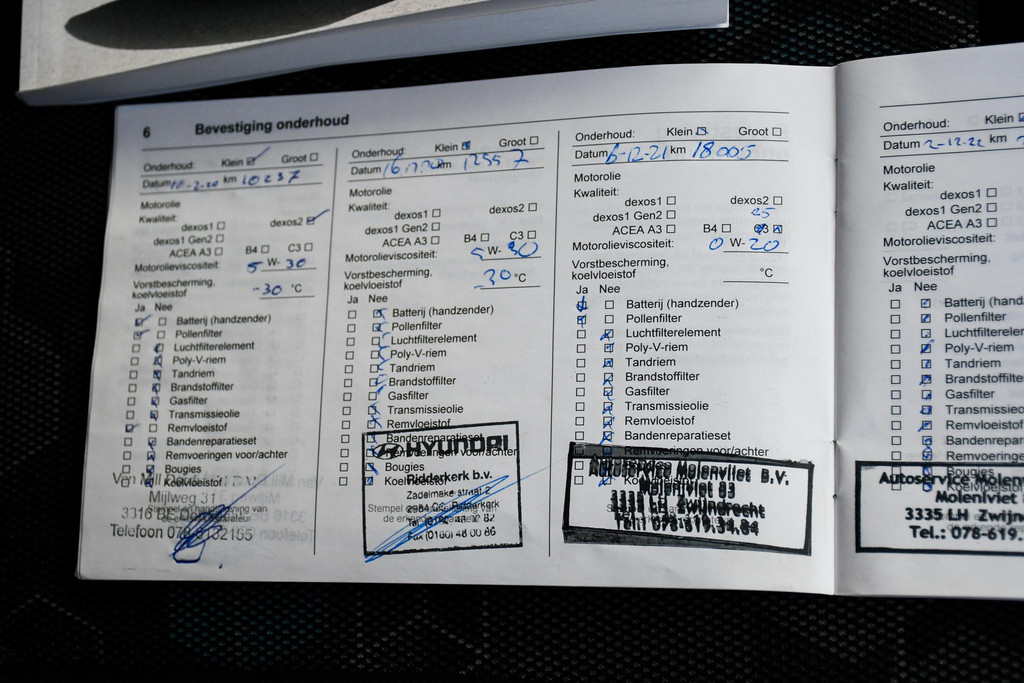 6 Bevestiging onderhoud
Onderhoud: Klein Groot
Datum km 10237
Motorolie
Kwaliteit:
dexos1 dexos2
dexos1 Gen2
ACEA A3 B4 C3
Motorolieviscositeit 5 W- 30
Vorstbescherming,
koelvloeistof -30 °C
Ja Nee
Batterij (handzender)
Pollenfilter
Luchtfilterelement
Poly-V-riem
Tandriem
Brandstoffilter
Gasfilter
Transmissieolie
Remvloeistof
Bandenreparatieset
Remvoeringen voor/achter
Bougies
Koelvloeistof
Mijlweg 31
3316 BE
Telefoon 078
Onderhoud: Klein Groot
Datum km
Motorolie
Kwaliteit:
dexos1 dexos2
dexos1 Gen2
ACEA A3 B4 C3
Motorolieviscositeit: 5 W- 30
Vorstbescherming,
koelvloeistof -30 °C
Ja Nee
Batterij (handzender)
Pollenfilter
Luchtfilterelement
Poly-V-riem
Tandriem
Brandstoffilter
Gasfilter
Transmissieolie
Remvloeistof
Bandenreparatieset
Remvoeringen voor/achter
Bougies
HYUNDAI
Ridderkerk b.v.
Zadelmake straat 2
2984 CC Ridderkerk
Fax (0180) 48 00 86
Onderhoud: Klein Groot
Datum 6-12-21 km 18005
Motorolie
Kwaliteit:
dexos1 dexos2
dexos1 Gen2
ACEA A3 B4 C3
Motorolieviscositeit: 0 W- 20
Vorstbescherming,
koelvloeistof °C
Ja Nee
Batterij (handzender)
Pollenfilter
Luchtfilterelement
Poly-V-riem
Tandriem
Brandstoffilter
Gasfilter
Transmissieolie
Remvloeistof
Bandenreparatieset
Remvoeringen voor/achter
Autoservice Molenvliet B.V.
Molenvliet 83
3335 LH Zwijndrecht
Tel.: 078-619.34.84
Onderhoud: Klein
Datum 2-12-22 km
Motorolie
Kwaliteit:
dexos1
dexos1 Gen2
ACEA A3
Motorolieviscositeit:
Vorstbescherming,
koelvloeistof
Ja Nee
Batterij (hand
Pollenfilter
Luchtfilterele
Poly-V-riem
Tandriem
Brandstoffilt
Gasfilter
Transmissio
Remvloeistof
Bandenrepar
Remvoering
Bougies
Autoservice Molen
Molenvliet
3335 LH Zwijn
Tel.: 078-619.